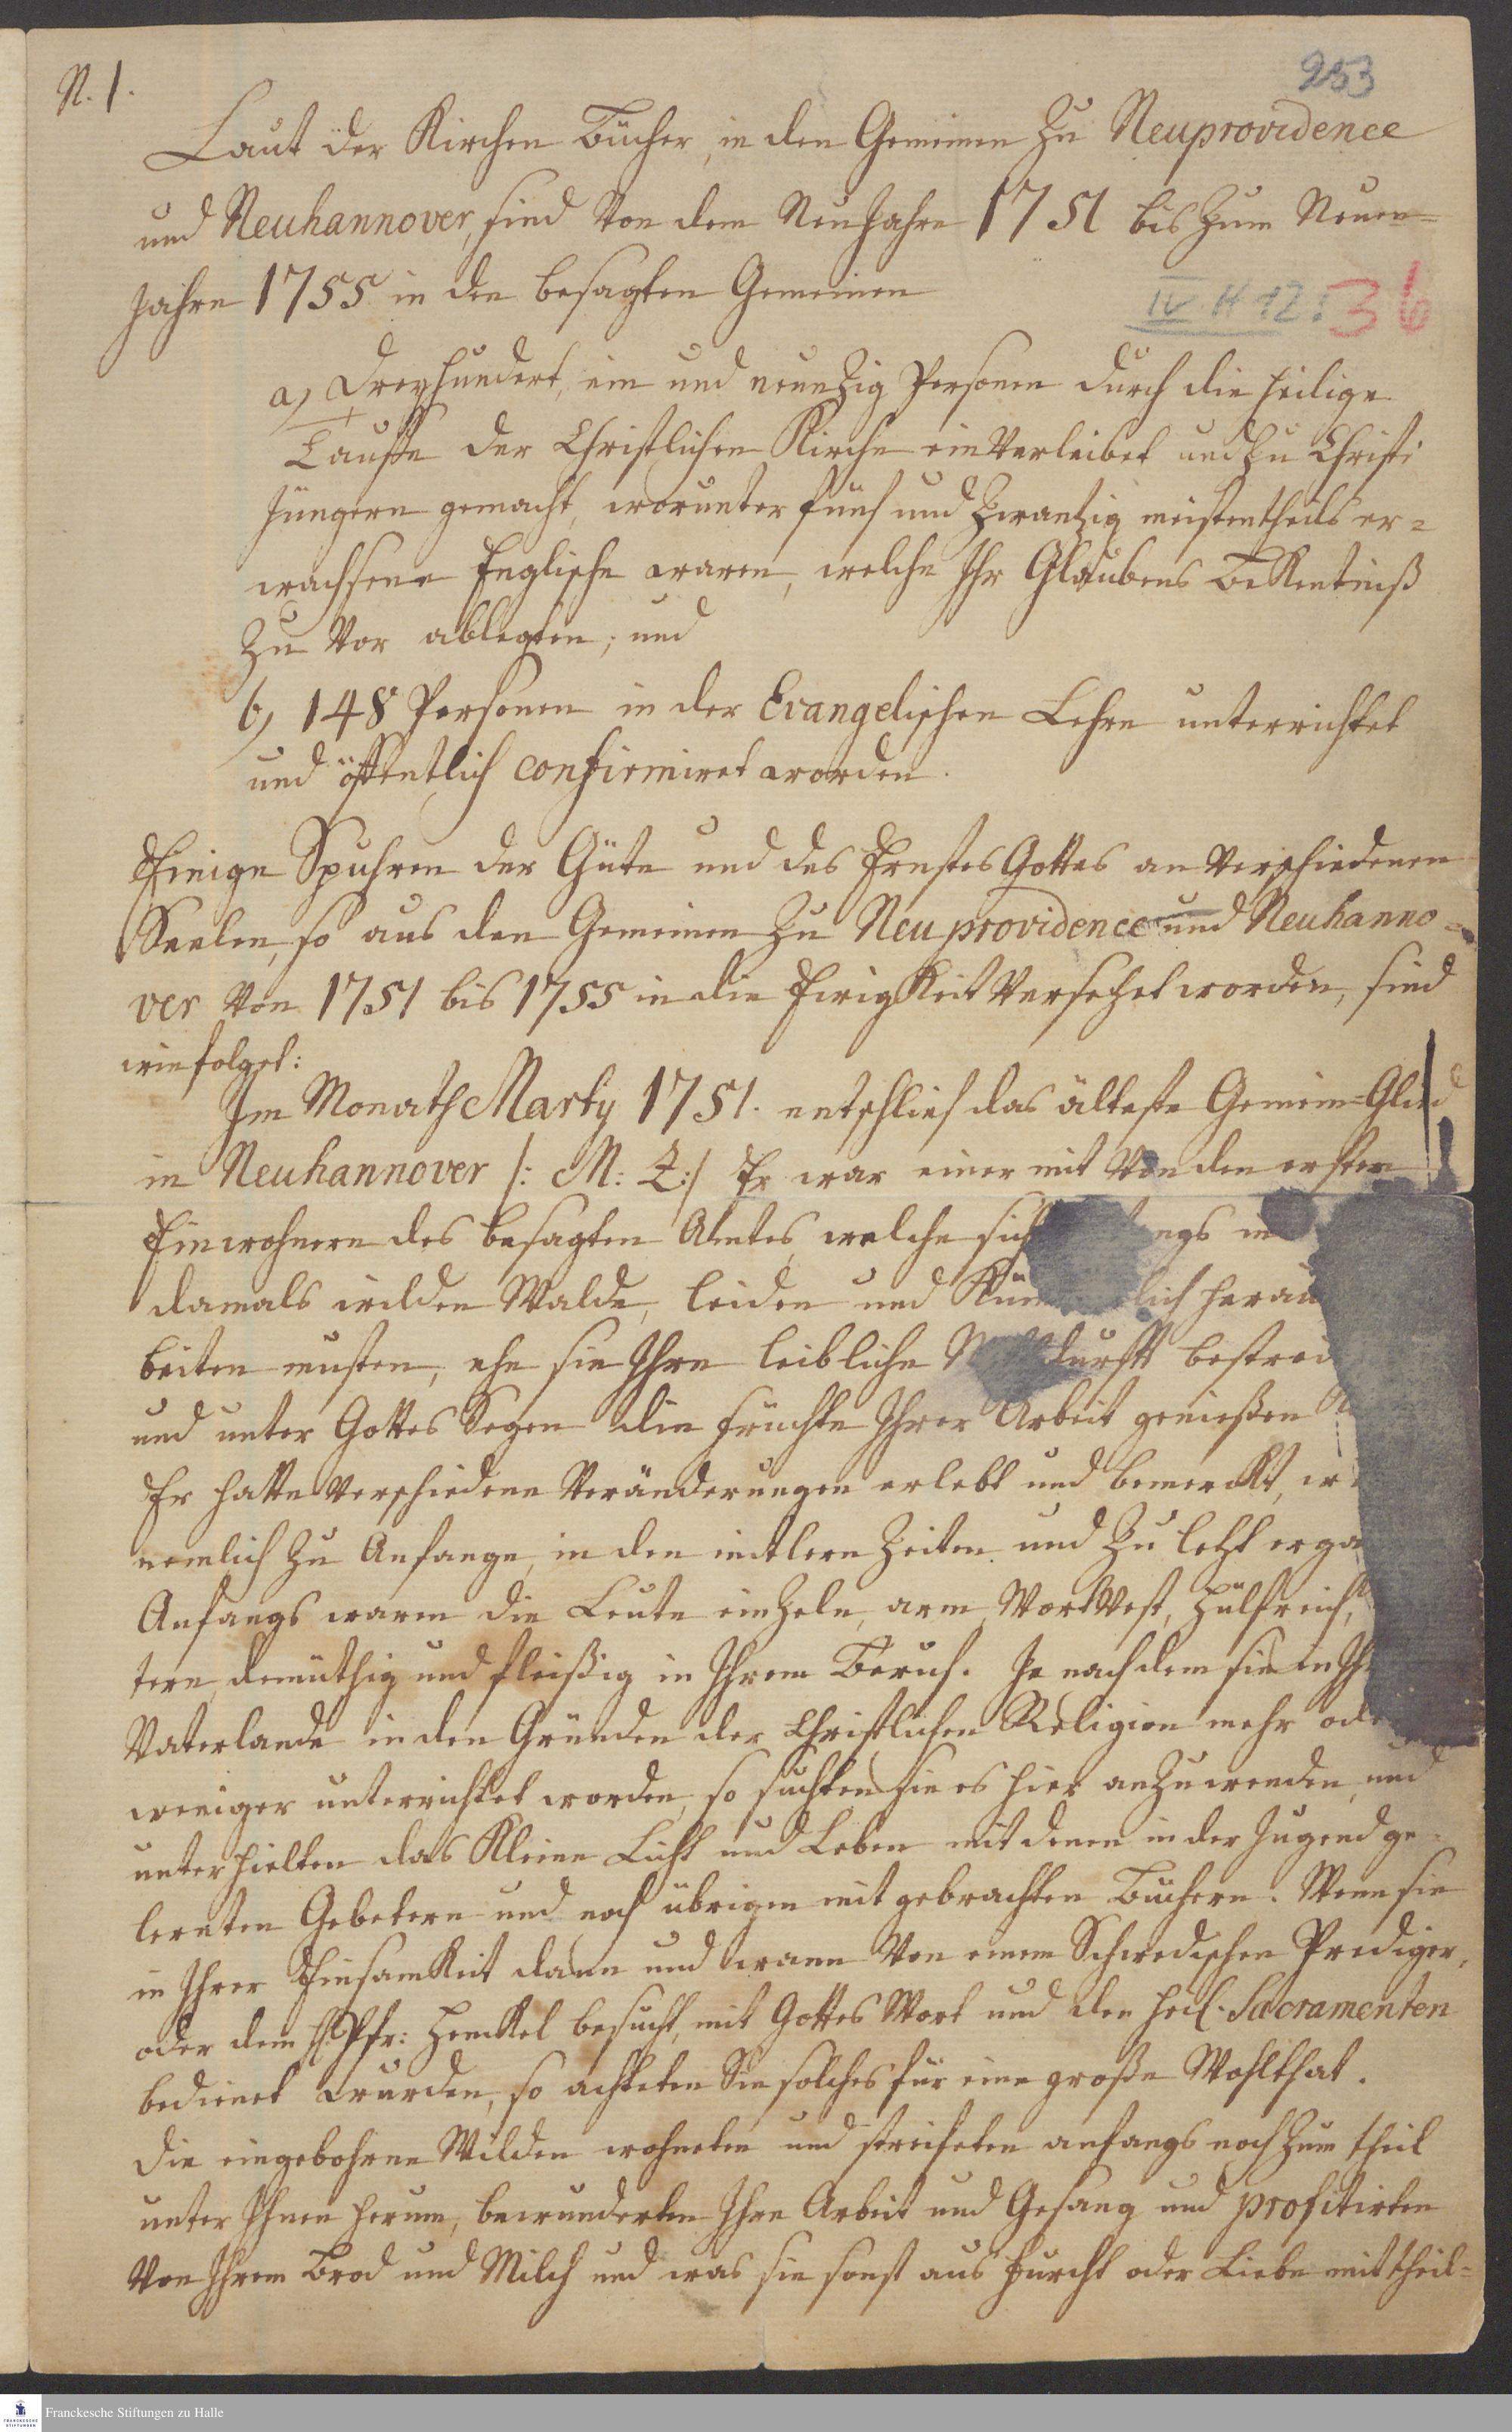 N. 1.
253
Laut der Kirchen Bücher, in den Gemeinen zu Neuprovidence
und Neuhannover, sind von dem NeuJahre 1751 bis zum Neuen=
Jahre 1755 in den besagten Gemeinen
IV H 12: 36
a) Dreyhundert, ein und neunzig Personen durch die heilige
Tauffe der Christlichen Kirche einverleibet und zu Christi
Jüngern gemacht, worunter fünf und zwantzig meistentheils er=
wachsene Englische waren, welche Ihr Glaubens Bekentniß
zu vor ablegten; und
b) 148 Personen in der Evangelischen Lehre unterrichtet
und öffentlich confirmiret worden.
Einige Spuhren der Güte und des Ernstes Gottes an verschiedenen
Seelen, so aus den Gemeinen zu Neuprovidence und Neuhanno=
ver von 1751 bis 1755 in die Ewigkeit versetzet worden, sind
wie folget:
Im Monath Marty 1751. entschlief das älteste Gemein=Glied
in Neuhannover /: M: Z:/ Er war einer mit von den ersten
Einwohnern des besagten Amtes, welche sich
damals wilden Walde, leiden und
beiten musten, ehe sie Ihre leibliche
und unter Gottes Segen die Früchte Ihrer Arbeit genießen
Er hatte verschiedene Veränderungen erlebt und bemerckt,
nemlich zu Anfange, in den mitlern Zeiten und zu letzt
Anfangs waren die Leute einzeln, arm, Wortvest, hülfreich,
tern, demüthig und fleißig in Ihrem Beruf. Je nach dem sie in
Vaterlande in den Gründen der Christlichen Religion mehr oder
weniger unterrichtet worden, so suchten sie es hier anzuwenden, und
unterhielten das kleine Licht und Leben mit denen in der Jugend ge=
lernten Gebetern und noch übrigen mit gebrachten Büchern. Wenn sie
in Ihrer Einsamkeit dann und wann von einem Schwedischen Prediger,
oder dem H Pfr: Henckel besucht, mit Gottes Wort und den heil. Sacramenten
bedienet wurden, so achteten Sie solches für eine große Wohlthat.
Die eingebohrne Wilden wohneten und streifeten anfangs noch zum theil
unter Ihnen herum, bewunderten Ihre Arbeit und Gesang und profitirten
von Ihrem Brod und Milch und was sie sonst aus Furcht oder Liebe mit theil=
Franckesche Stiftungen zu Halle